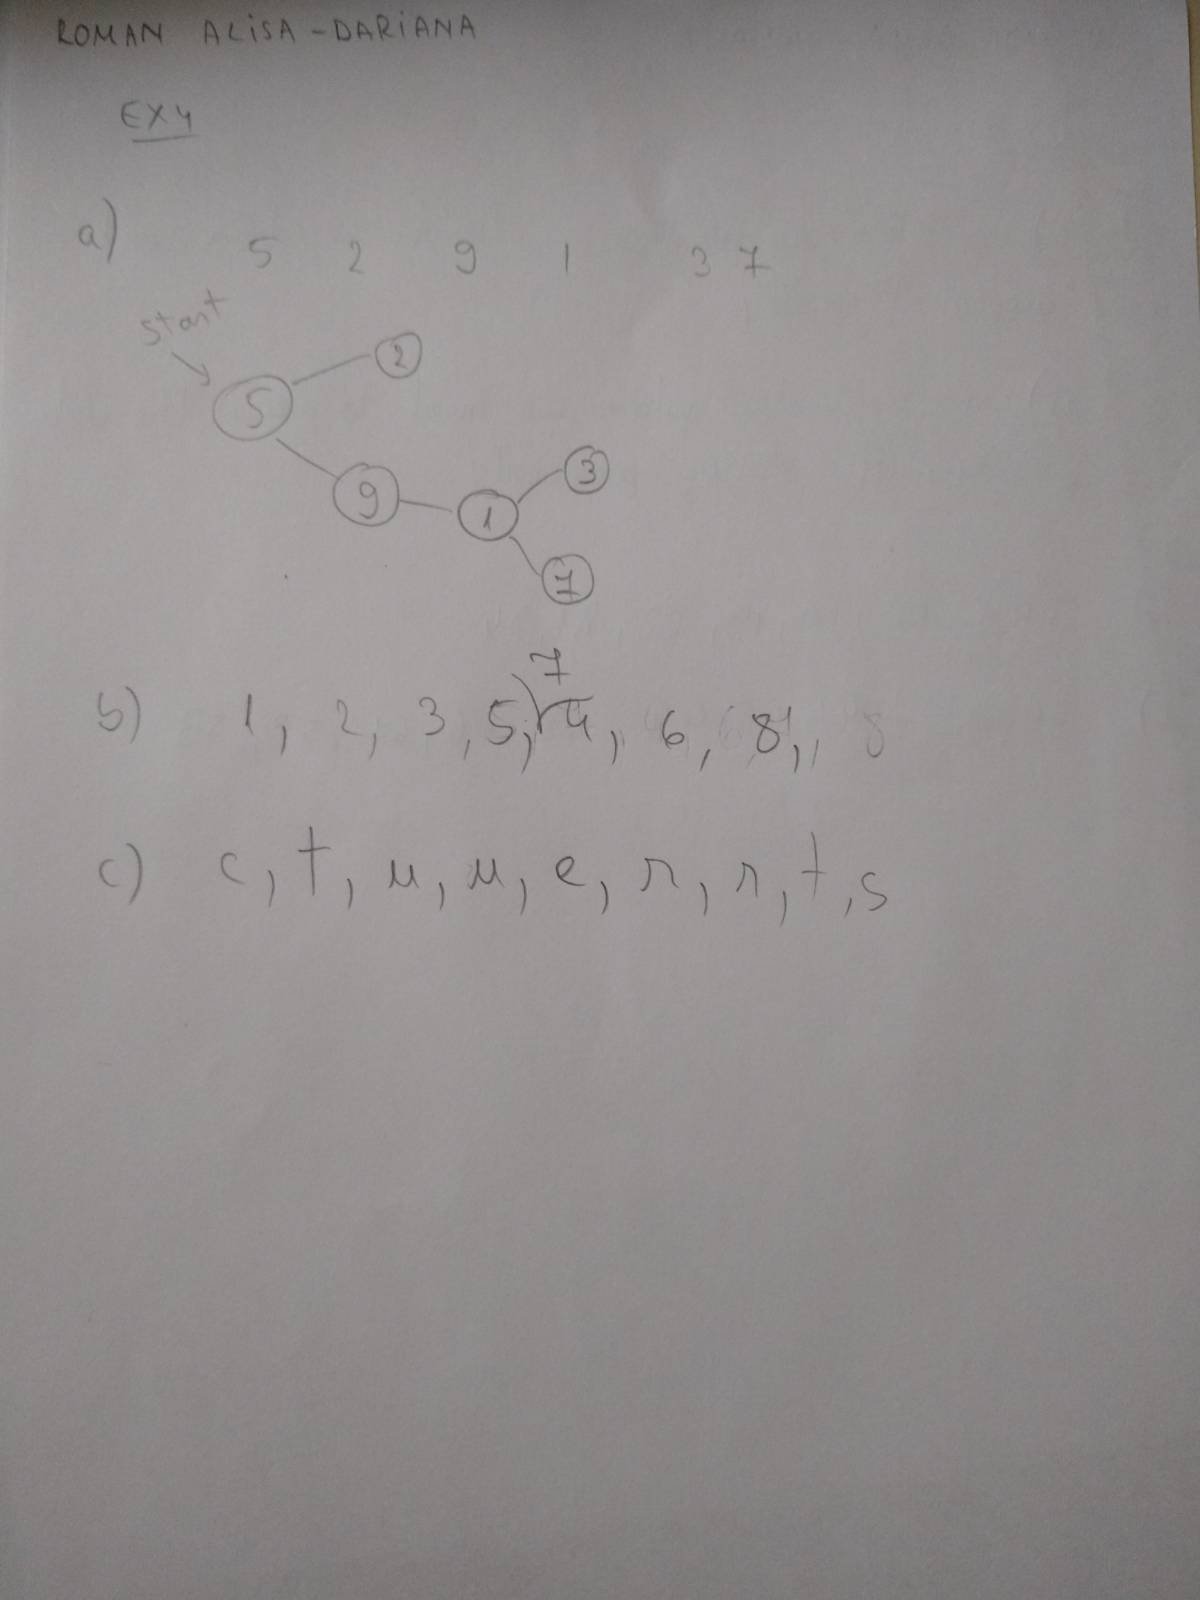 ROMAN ALISA-DARIANA
EX4
a) 5 2 9 1 3 7
start
2
5
3
9
1
7
7
b) 1, 2, 3, 5, 4, 6, 8,, 8
c) c, t, u, u, e, r, r, t, s